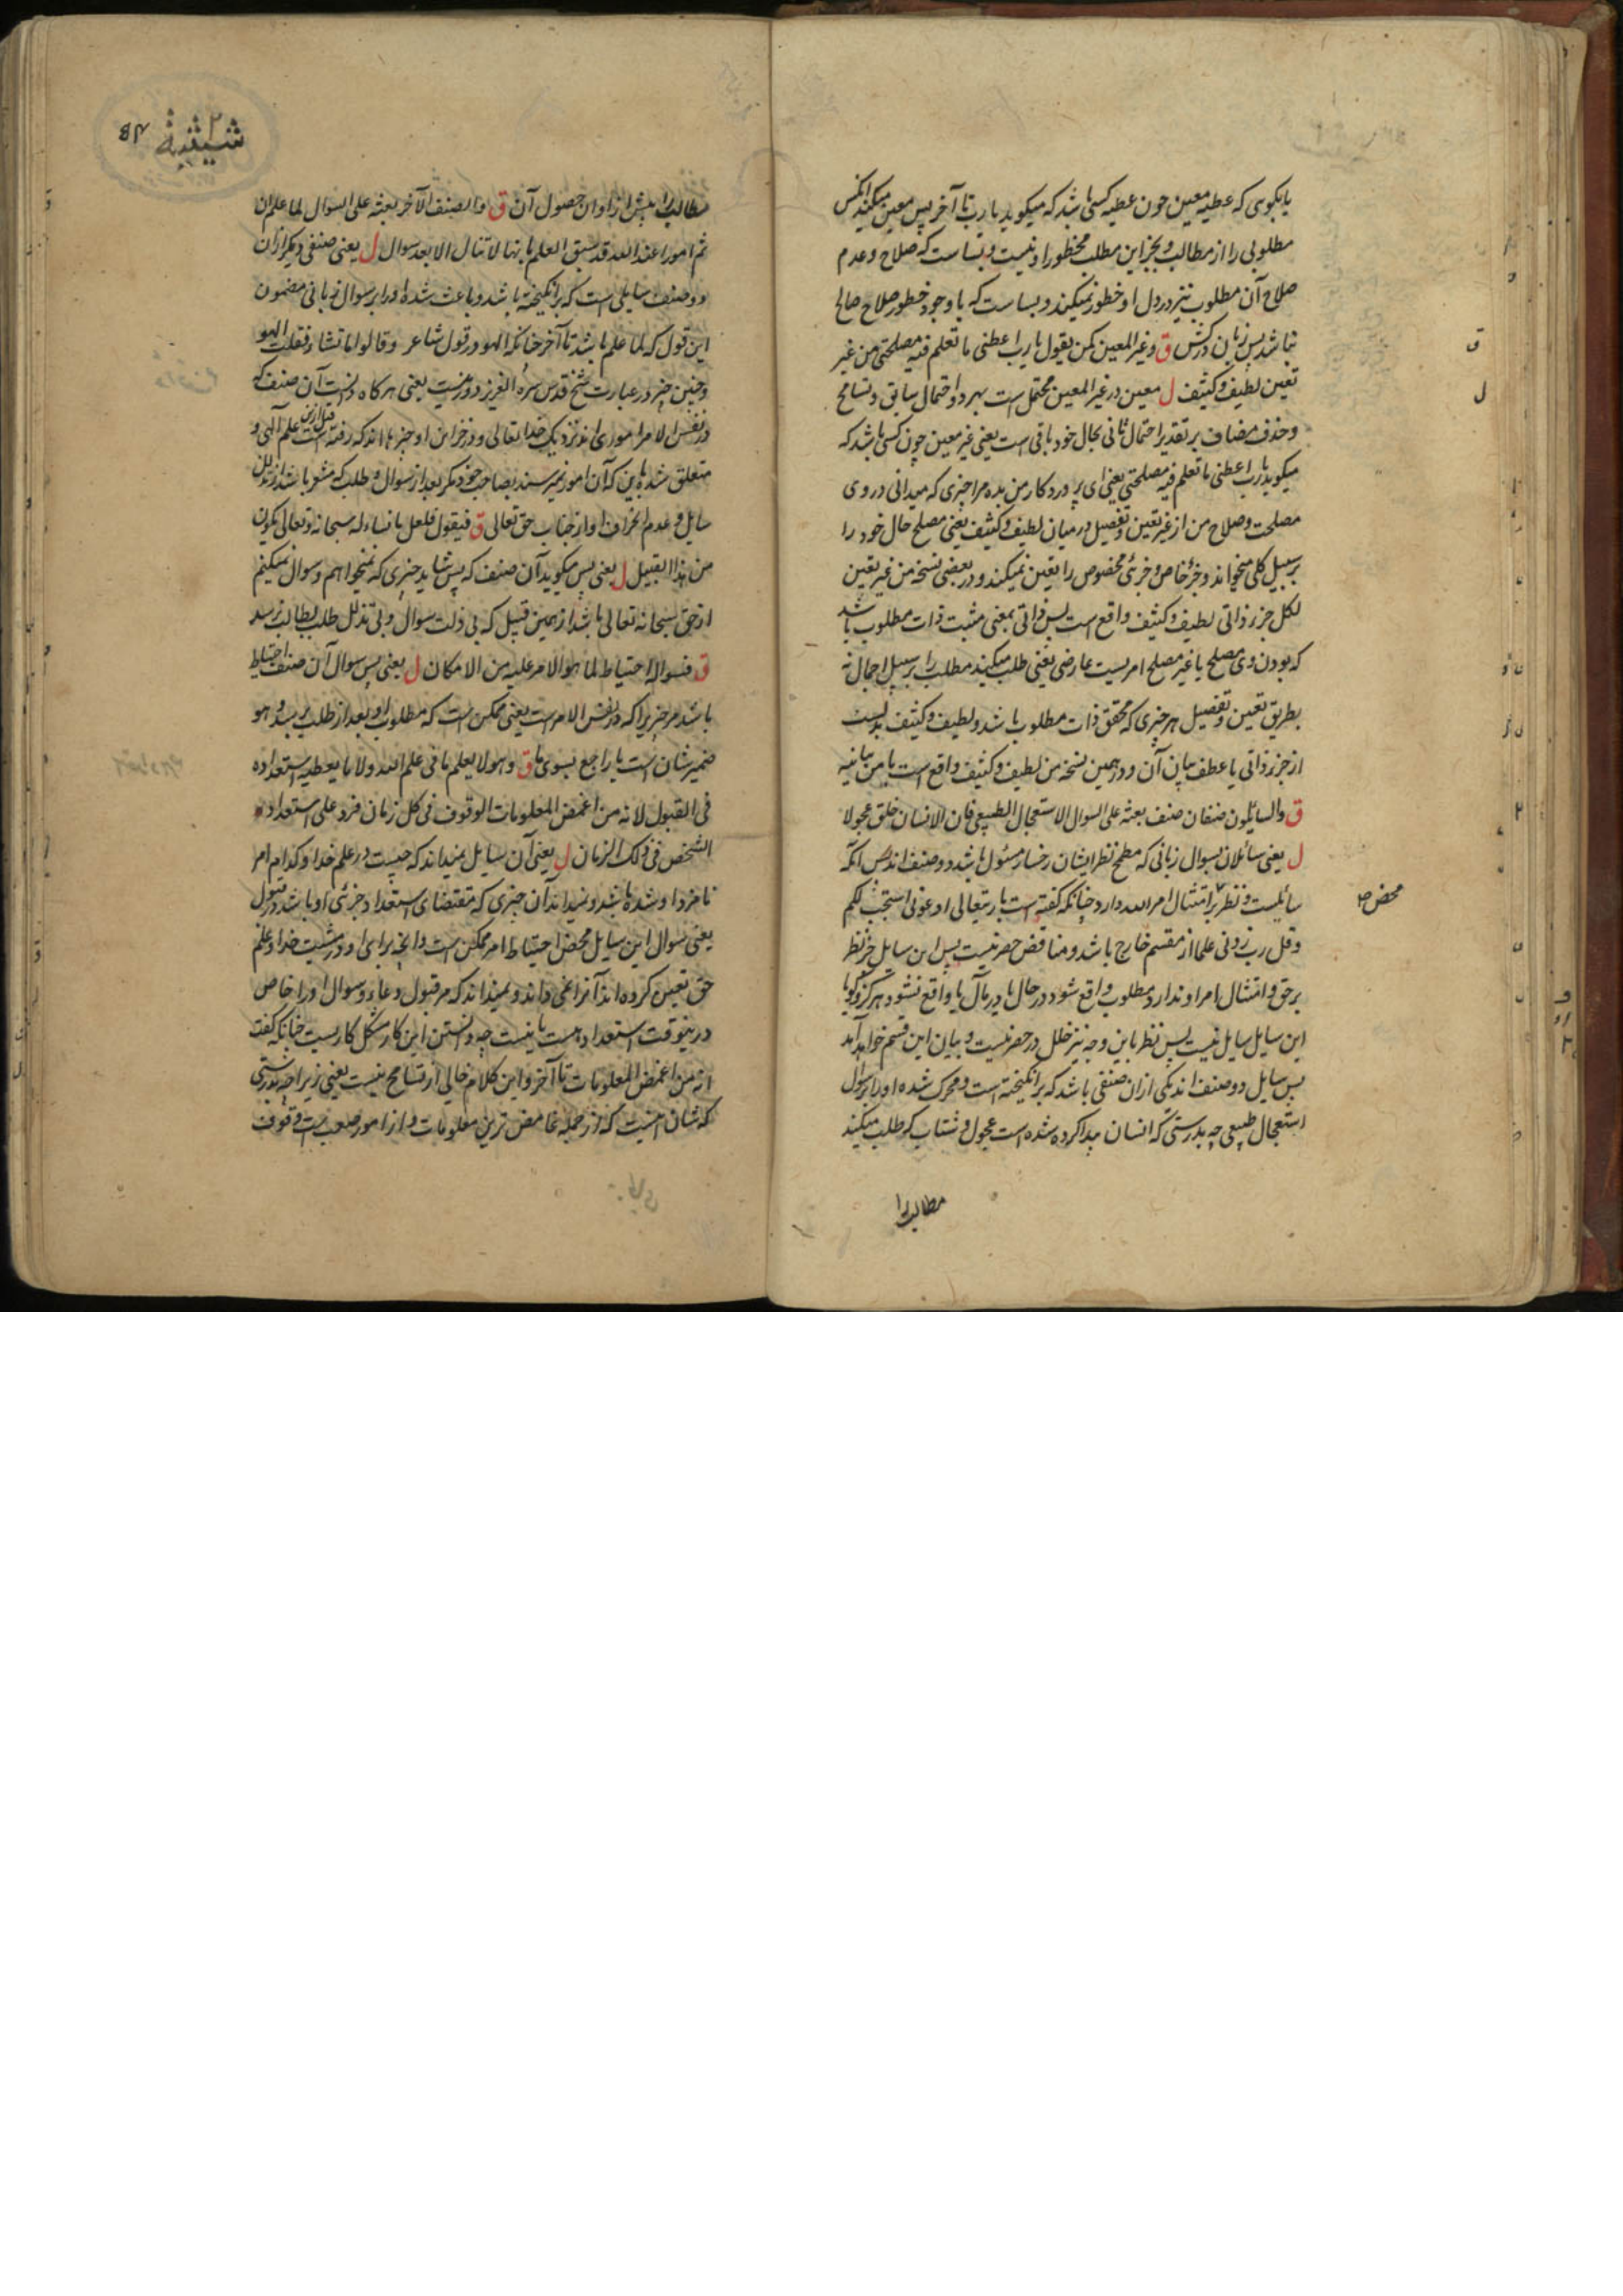 یا بکوی که عطیه معین چون عطیه کسی باشد که میکوید یا رب تا آخر پس معین میکند انکس
مطلوبی را از مطالب و بجز این مطلب مخطور او نیست و بسا ست که صلاح و عدم
صلاح آن مطلوب نیز در دل او خطور نمیکند و بسا ست که با وجود خطور صلاح صالح
نباشد پس زبان درکش ق وغیر المعین کمن یقول یا رب اعطنی ما تعلم فیه مصلحتی من غیر
تعین لطیف و کثیف ل معین در غیر المعین محتمل است بهر دو احتمال سابق و تسامح
و حذف مضاف بر تقدیر احتمال ثانی بحال خود باقی است یعنی غیر معین چون کسی باشد که
میکوید یا رب اعطنی ما تعلم فیه مصلحتی یعنی ای پروردکار من بده مرا چیزی که میدانی در وی
مصلحت و صلاح من از غیر تعین و تفصیل درمیان لطیف و کثیف یعنی مصلح حال خود را
بر سبیل کلی میخواند و جزء خاص و جزئی مخصوص را تعین نمیکند و در بعضی نسخه من غیر تعین
لکل جزء ذاتی لطیف و کثیف واقع است پس ذاتی بمعنی مثبت ذات مطلوب باشد
که بودن وی مصلح یا غیر مصلح امریست عارضی یعنی طلب میکند مطلب را بر سبیل اجمال نه
بطریق تعین و تفصیل هر چیزی که محقق ذات مطلوب باشد و لطیف و کثیف بدلست
از جزء ذاتی یا عطف بیان آن و در همین نسخه من لطیف و کثیف واقع است با من بیانیه
ق والسائلون صنفان صنف بعثه علی السوال الاستعجال الطبیعی فان الانسان خلق عجولا
ل یعنی سائلان بسوال زبانی که مطمح نظر ایشان رخسار مسئول باشد دو صنف اند پس آنکه
سائلست و نظر بر امتثال امر الله دارد چنانکه کفته است باریتعالی ادعونی استجب لکم
محض
وقل رب زدنی علما از مقسم خارج باشد و مناقض حصر نیست پس این سایل جز نظر
بر حق و امتثال امر او ندارد مطلوب واقع شود در حال یا در مآل یا واقع نشود هرکز و کویا
این سایل سایل نیست پس نظر باین وجه نیز خلل در حصر نیست و بیان این قسم خواهد آمد
پس سایل دو صنف اند یکی ازان صنفی باشد که برانکیخته است و محرک شده او را بر سوال
استعجال طبیعی چه بدرستی که انسان پیدا کرده شده است عجول و شتاب که طلب میکند
مطالب را
مطالب را پیش از اوان حصول آن ق والصنف الآخر بعثه علی السوال لما علم ان
ثم امورا عند الله قد سبق العلم بانها لا تنال الا بعد سوال ل یعنی صنفی دیکر ازان
دو صنف سایلی است که برانکیخته باشد و باعث شده او را بر سوال زبانی مضمون
این قول که لما علم باشد تا آخر چنانکه الهو در قول شاعر وقالوا ما تشاء فقلت الهو
و چنین چیز در عبارت شیخ قدس سره العزیز دور نیست یعنی هرکاه دانست آن صنف که
در نفس الامر اموری اند نزدیک خدا تعالی و در خزاین او چیزها اند که رفته است قبل ازین علم آلهی و
متعلق شده باین که آن امور نمیرسند بصاحب خود مکر بعد از سوال و طلب که مشعر باشد از تذلل
سایل و عدم انحراف او از جناب حق تعالی ق فیقول فلعل ما نساءله سبحانه و تعالی یکون
من هذا القبیل ل یعنی پس میکوید آن صنف که پس شاید چیزی که میخواهم و سوال میکنم
از حق سبحانه تعالی باشد از همین قبیل که بی ذلت سوال و بی تذلل طلب بطالب نرسد
ق فسواله احتیاط لما هو الامر علیه من الامکان ل یعنی پس سوال آن صنف احتیاط
باشد مر چیزیرا که در نفس الامر است یعنی ممکن است که مطلوب او بعد از طلب برسد و هو
ضمیر شان است یا راجع بسوی ما ق وهو لا یعلم ما فی علم الله ولا ما یعطیه استعداده
فی القبول لانه من اغمض المعلومات الوقوف فی کل زمان فرد علی استعداد
الشخص فی ذلک الزمان ل یعنی آن سایل نمیداند که چیست در علم خدا و کدام امر
نامزد او شده باشد و نمیداند آن چیزی که مقتضای استعداد جزئی او باشد در قبول
یعنی سوال این سایل محض احتیاط امر ممکن است و انچه برای او در مشیت خدا و علم
حق تعین کرده اند آنرا نمی داند و نمیداند که مر قبول دعا و سوال او را خاص
درینوقت استعداد هست یا نیست چه دانستن این کار مشکل کاریست چنانکه کفت
انه من اغمض المعلومات تا آخر و این کلام خالی از تسامح نیست یعنی زیرا چه بدرستی
که شان اینست که از جمله غامض ترین معلومات و از امور صعب است وقوف